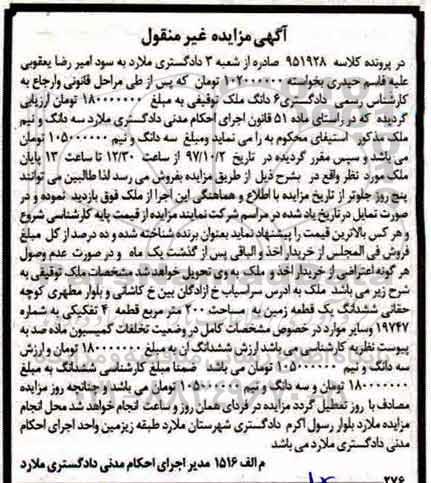 آگهی مزایده غیر منقول
در پرونده کلاسه ۹۵۱۹۲۸ صادره از شعبه ۳ دادگستری ملارد به سود امیر رضا یعقوبی
علیه قاسم حیدری بخواسته ۱۰۲۰۰۰۰۰۰ تومان که پس از طی مراحل قانونی وارجاع به
کارشناس رسمی دادگستری ۶ دانگ ملک توقیفی به مبلغ ۱۸۰۰۰۰۰۰۰ تومان ارزیابی
گردیده که در راستای ماده ۵۱ قانون اجرای احکام مدنی دادگستری ملارد سه دانگ و نیم
ملک مذکور استیفای محکوم به را می نماید ومبلغ سه دانگ و نیم ۱۰۵۰۰۰۰۰۰ تومان
می باشد و سپس مقرر گردیده در تاریخ ۹۷/۱۰/۲ از ساعت ۱۲/۳۰ تا ساعت ۱۳ پایان
ملک مورد نظر واقع در بشرح ذیل از طریق مزایده بفروش می رسد لذا طالبین می توانند
پنج روز جلوتر از تاریخ مزایده با اطلاع و هماهنگی این اجرا از ملک فوق بازدید نموده و در
صورت تمایل در تاریخ یاد شده در مراسم شرکت نمایند مزایده از قیمت پایه کارشناسی شروع
و هر کس بالاترین قیمت را پیشنهاد نماید بعنوان برنده شناخته شده و ده درصد از کل مبلغ
فروش فی المجلس از خریدار اخذ و الباقی پس از گذشت یک ماه و در صورت عدم وصول
هر گونه اعتراضی از خریدار اخذ و ملک به وی تحویل خواهد شد مشخصات ملک توقیفی به
شرح زیر می باشد ملک به آدرس سرآسیاب خ ازادگان بین خ کاشانی و بلوار مطهری کوچه
حقانی ششدانگ یک قطعه زمین به مساحت ۲۰۰ متر مربع قطعه ۴ تفکیکی به شماره
۱۹۷۴۷ وسایر موارد در خصوص مشخصات کامل در وضعیت تخلفات کمیسیون ماده صد به
پیوست نظریه کارشناس می باشد ارزش ششدانگ آن به مبلغ ۱۸۰۰۰۰۰۰۰ تومان و ارزش
سه دانگ و نیم ۱۰۵۰۰۰۰۰۰ تومان می باشد ضمنا مبلغ کارشناسی ششدانگ به مبلغ
۱۸۰۰۰۰۰۰۰ تومان و سه دانگ و نیم ۱۰۵۰۰۰۰۰۰ تومان می باشد و چنانچه روز مزایده
مصادف با روز تعطیل گردد مزایده در فردای همان روز و ساعت انجام خواهد شد محل انجام
مزایده ملارد بلوار رسول اکرم دادگستری شهرستان ملارد طبقه زیرزمین واحد اجرای احکام
مدنی دادگستری ملارد می باشد
م الف ۱۵۱۶ مدیر اجرای احکام مدنی دادگستری ملارد
۲۷۶